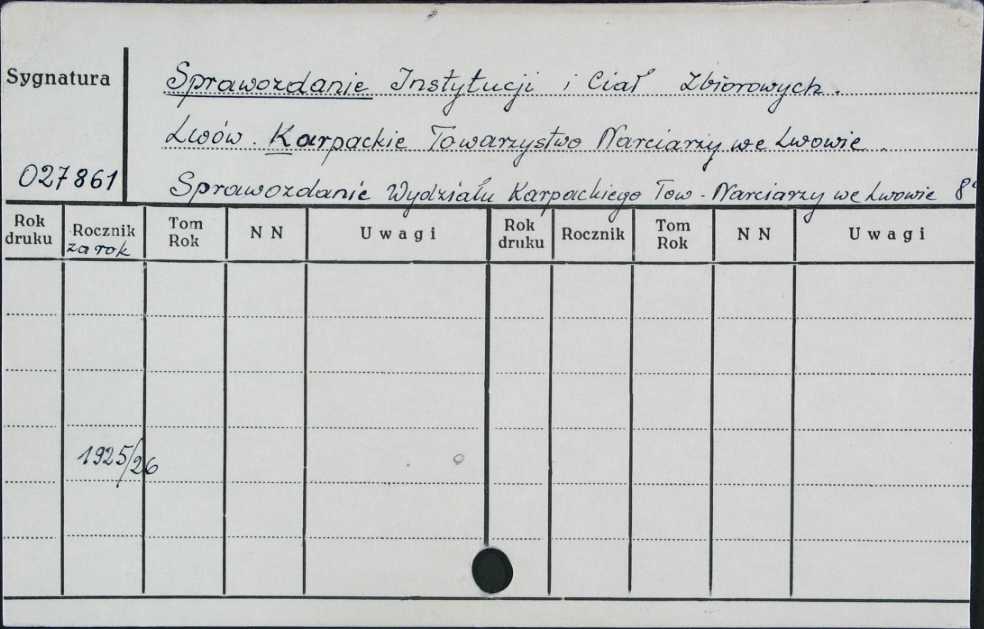 Sygnatura
Sprawozdanie Instytucji i Ciał Zbiorowych.
Lwów. Karpackie Towarzystwo Narciarzy we Lwowie.
027861
Sprawozdanie Wydziału Karpackiego Tow. Narciarzy we Lwowie 8°
Rok druku Rocznik za rok Tom Rok NN Uwagi Rok druku Rocznik Tom Rok NN Uwagi
1925/26